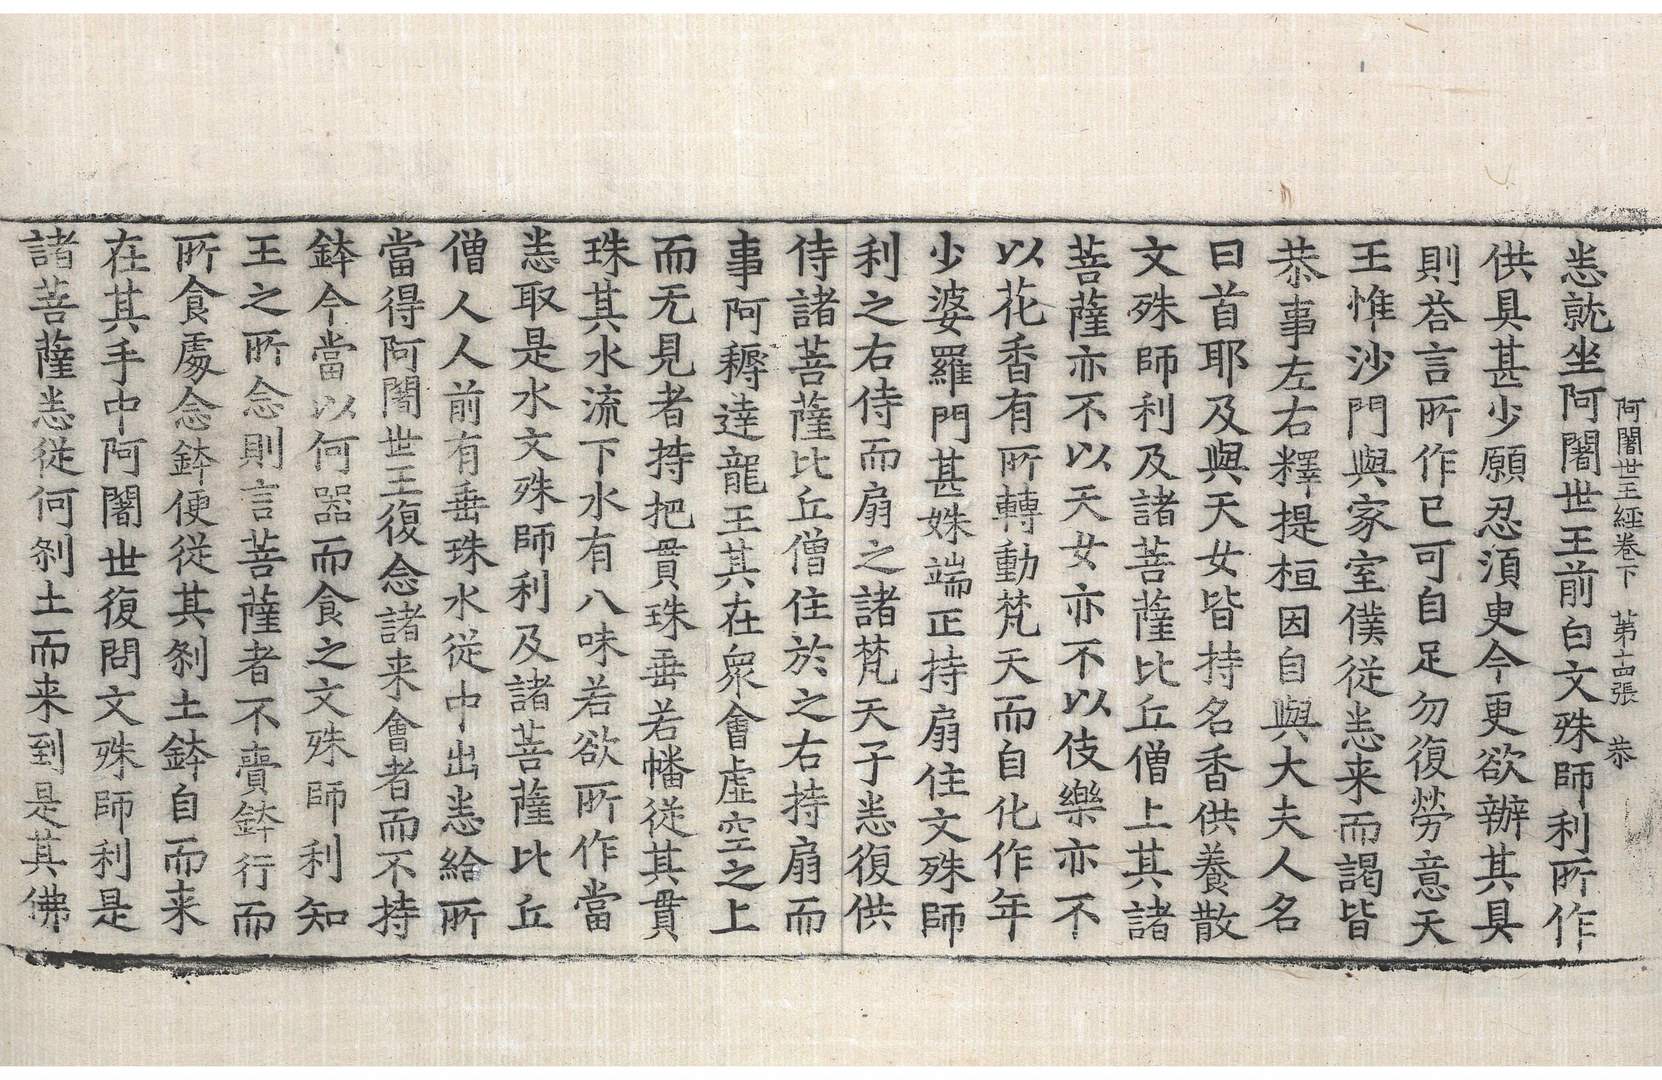 阿闍世王經卷下 第十四張 恭
恙就坐阿闍世王前白文殊師利所作
供具甚少願忍須臾今更欲辦其具
則荅言所作已可自足勿復勞意天
王惟沙門與家室僕從恙来而謁皆
恭事左右釋提桓因自與大夫人名
曰首耶及與天女皆持名香供養散
文殊師利及諸菩薩比丘僧上其諸
菩薩亦不以天女亦不以伎樂亦不
以花香有所轉動梵天而自化作年
少婆羅門甚姝端正持扇住文殊師
利之右侍而扇之諸梵天子恙復供
侍諸菩薩比丘僧住於之右持扇而
事阿耨達龍王其在衆會虛空之上
而无見者持把貫珠垂若幡從其貫
珠其水流下水有八味若欲所作當
恙取是水文殊師利及諸菩薩比丘
僧人人前有垂珠水從中出恙給所
當得阿闍世王復念諸来會者而不持
鉢今當以何器而食之文殊師利知
王之所念則言菩薩者不賷鉢行而
所食處念鉢便從其剎土鉢自而来
在其手中阿闍世復問文殊師利是
諸菩薩恙從何剎土而来到是其佛